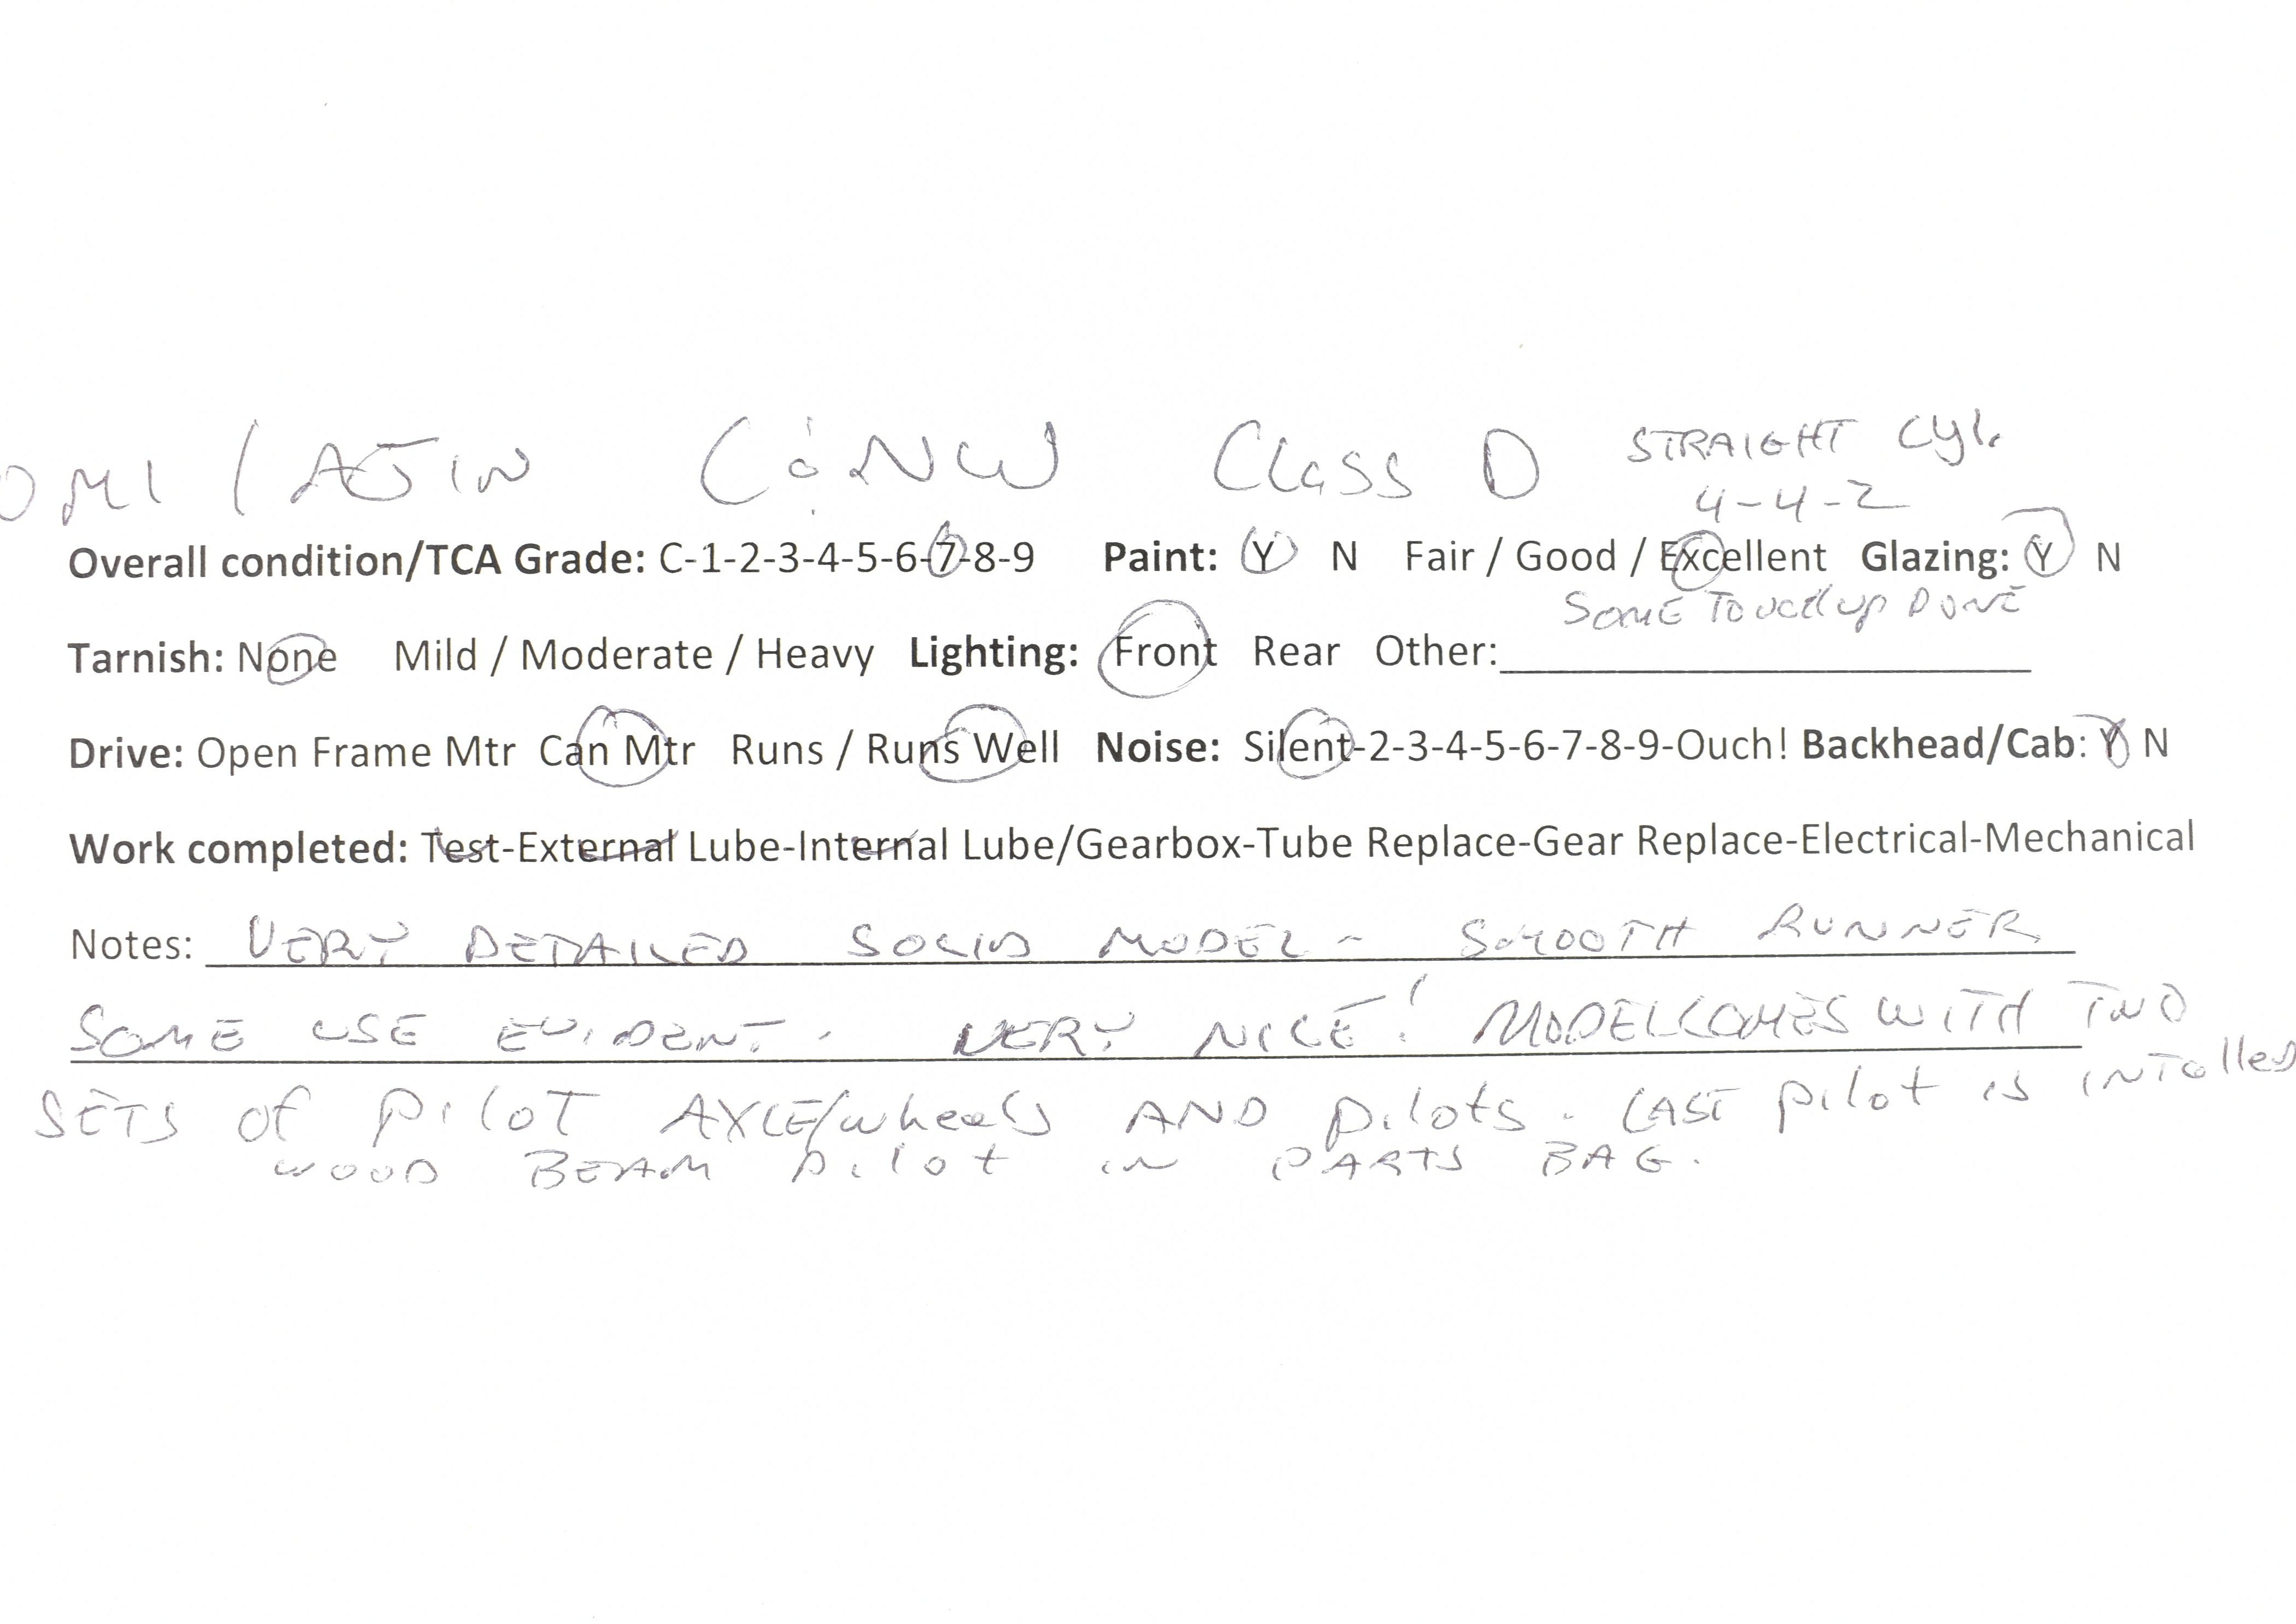 OMI / AJIN C&NW Class D STRAIGHT Cyl.
4-4-2
Overall condition/TCA Grade: C-1-2-3-4-5-6-7-8-9 Paint: Y N Fair / Good / Excellent Glazing: Y N
SOME Touch up DONE
Tarnish: None Mild / Moderate / Heavy Lighting: Front Rear Other:
Drive: Open Frame Mtr Can Mtr Runs / Runs Well Noise: Silent-2-3-4-5-6-7-8-9-Ouch! Backhead/Cab: Y N
Work completed: Test-External Lube-Internal Lube/Gearbox-Tube Replace-Gear Replace-Electrical-Mechanical
Notes: VERY DETAILED SOLID MODEL - SMOOTH RUNNER
SOME USE EVIDENT. VERY NICE! MODEL COMES WITH TWO
SETS of PiloT AXLE/wheels AND pilots. CAST pilot is INTalled
WOOD BEAM pilot in PARTS BAG.